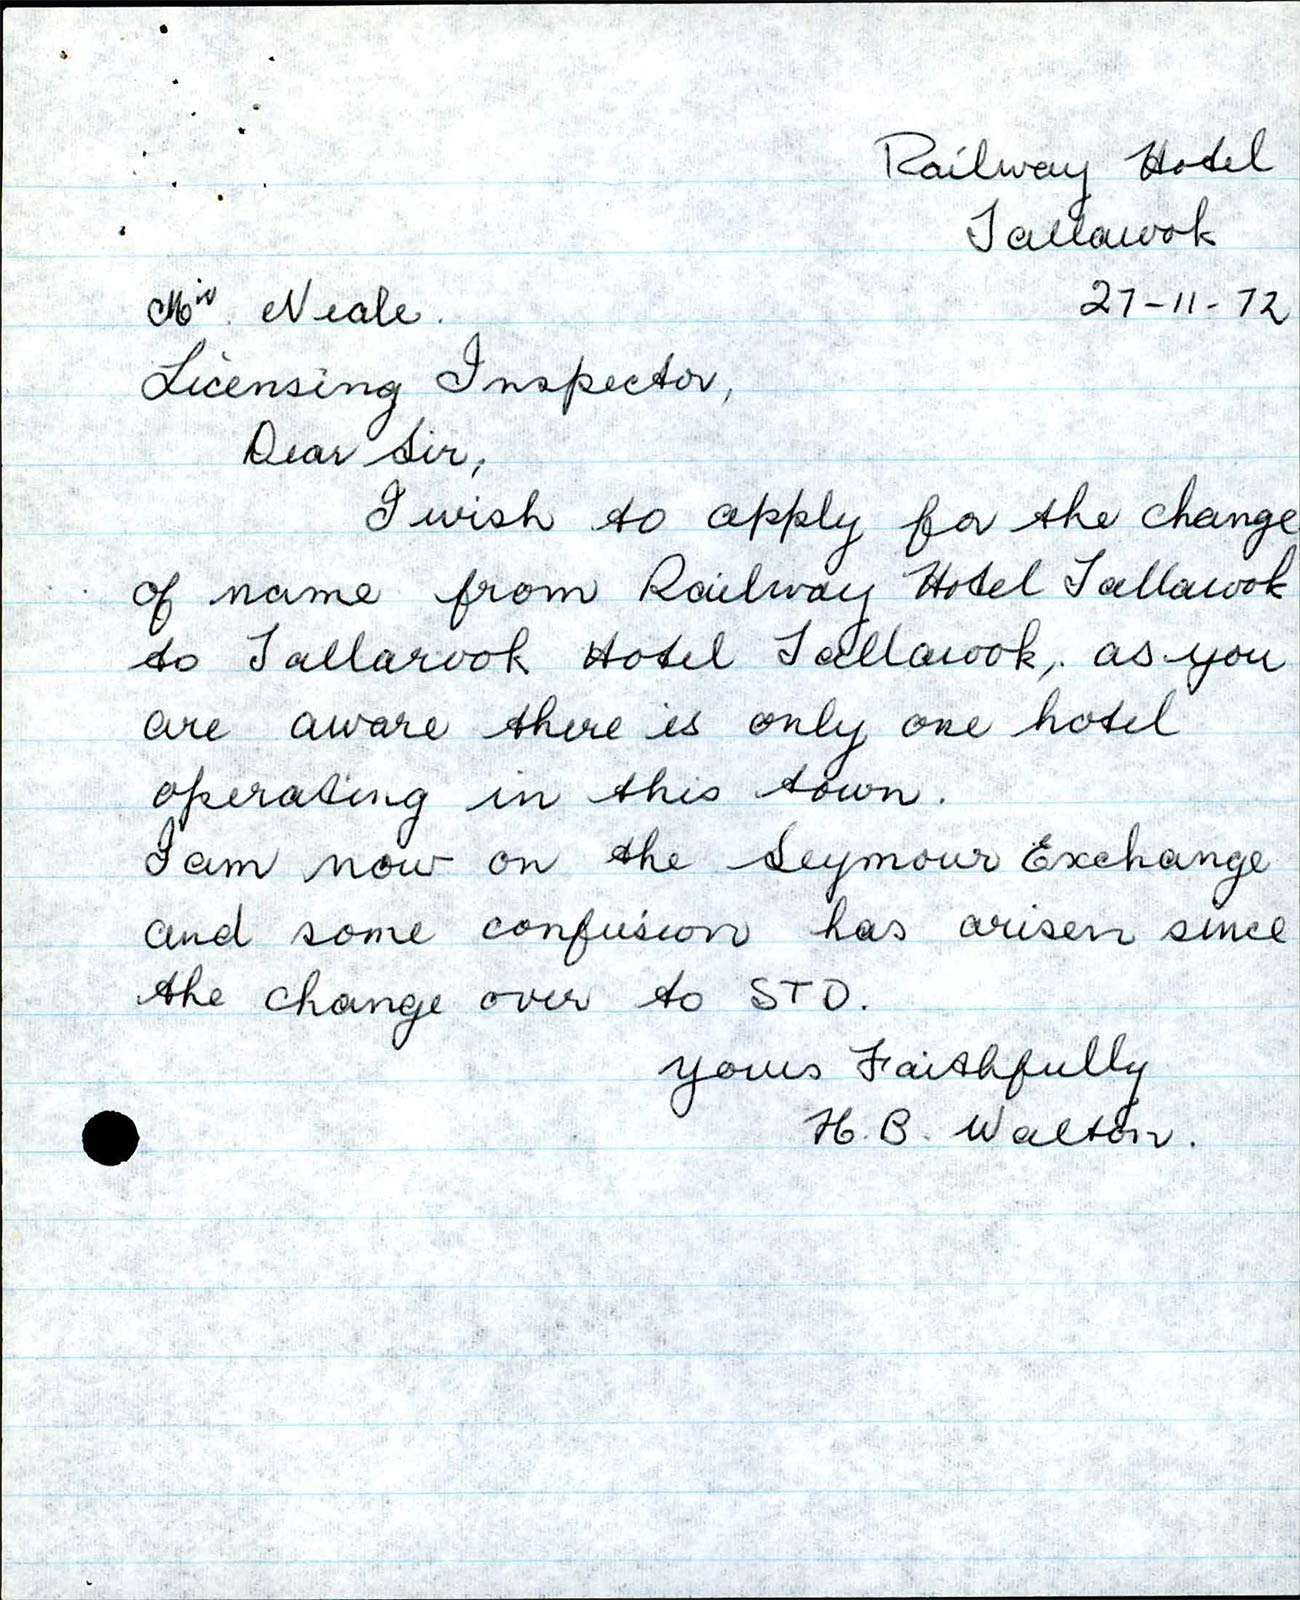 Railway Hotel
Tallarook
27-11-72
Mr. Neale.
Licensing Inspector,
Dear Sir,
I wish to apply for the change
of name from Railway Hotel Tallarook
to Tallarook Hotel Tallarook, as you
are aware there is only one hotel
operating in this town.
I am now on the Seymour Exchange
and some confusion has arisen since
the change over to STD.
yours Faithfully
H. B. Walton.